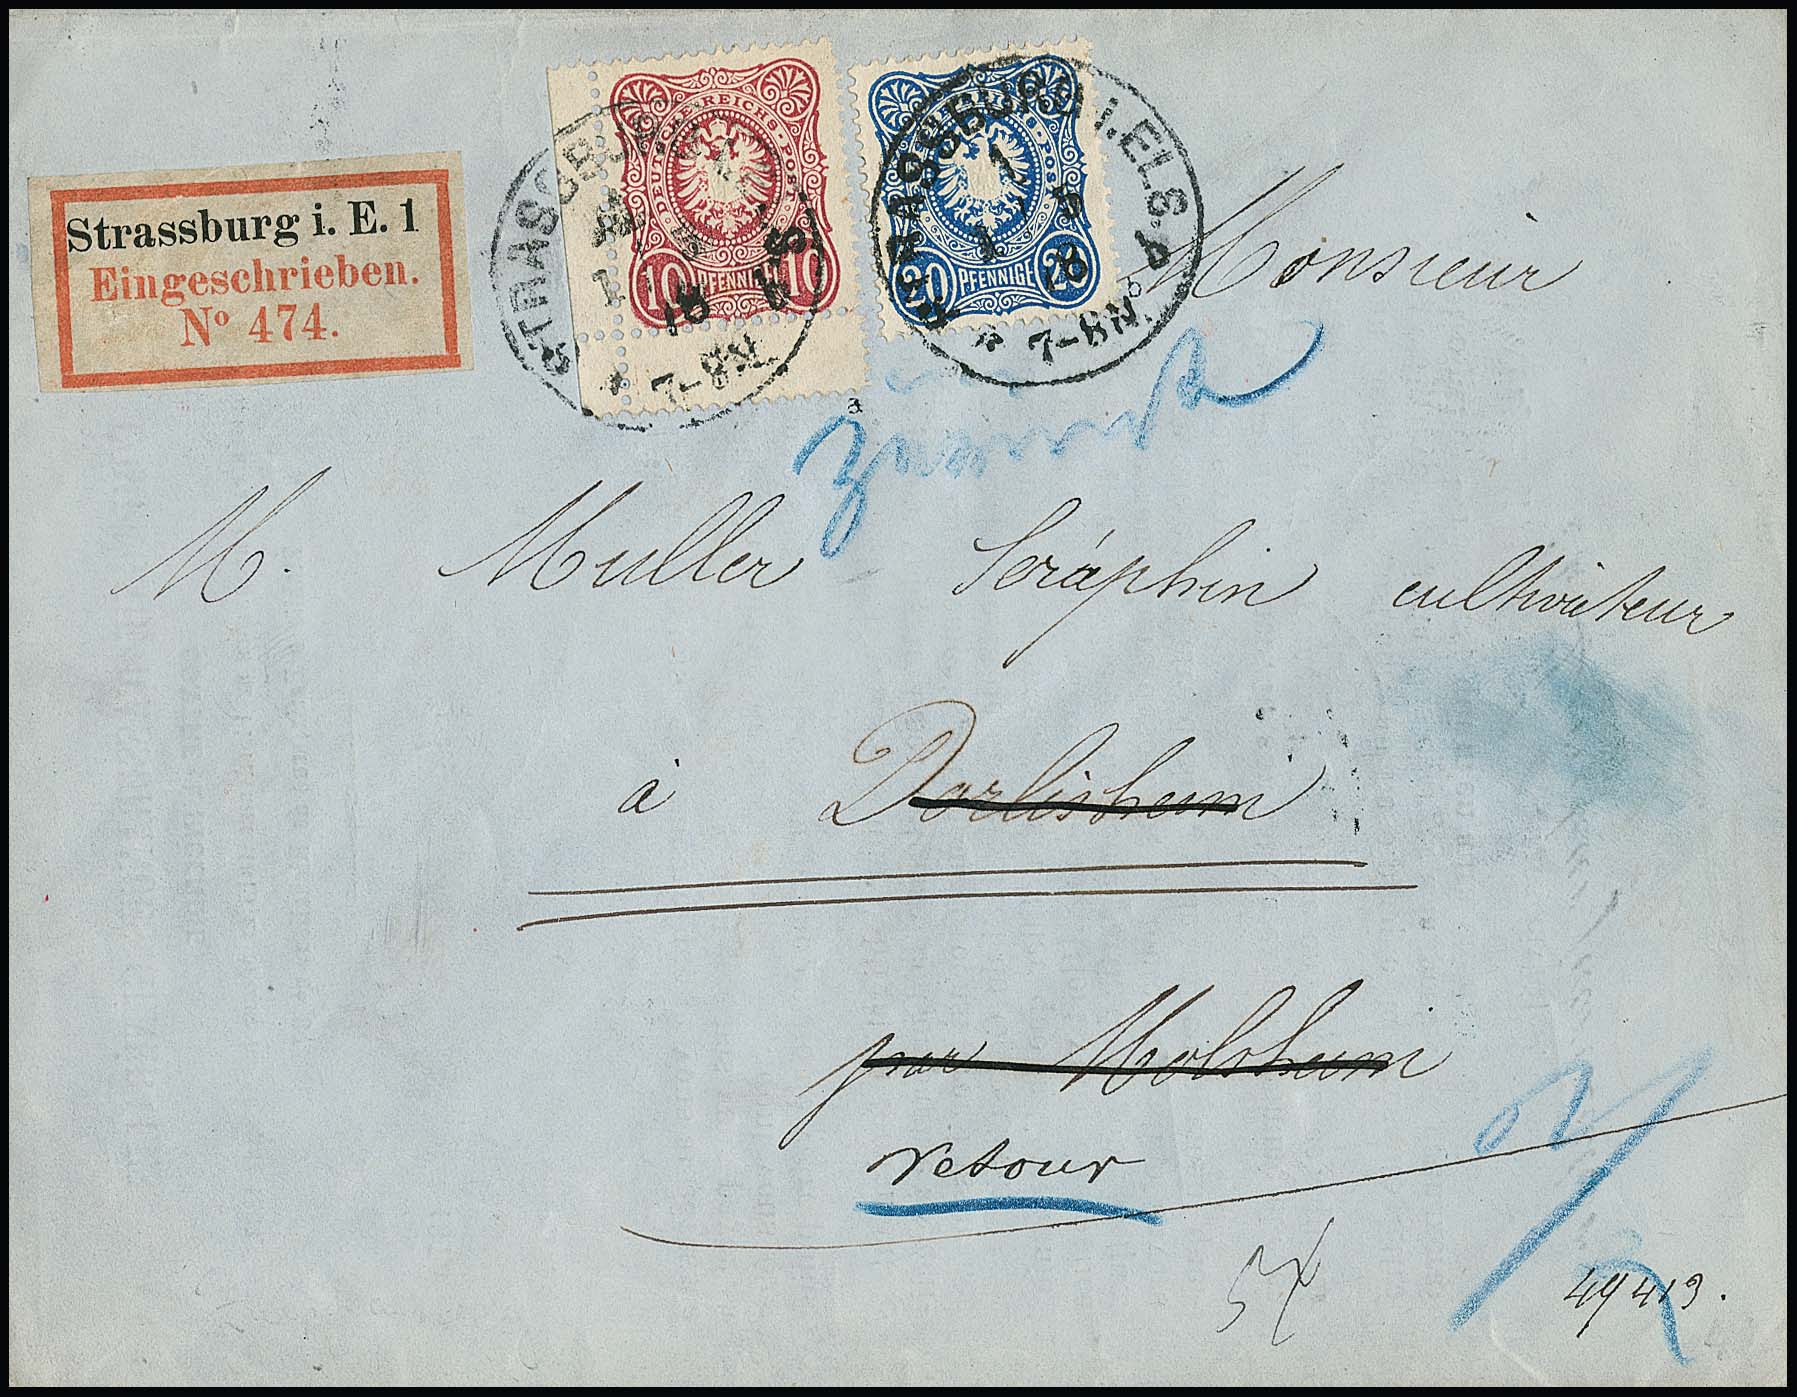 Strassburg i. E. 1
Eingeschrieben.
Nº 474.
DEUTSCHE REICHS-POST
10 PFENNIGE 10
REICHS-POST
20 PFENNIGE 20
STRASSBURG
7-8N.
STRASSBURG i. ELS.
7-8N.
Monsieur
M. Muller Séraphin cultivateur
à Dorlisheim
par Molsheim
retour
49413.